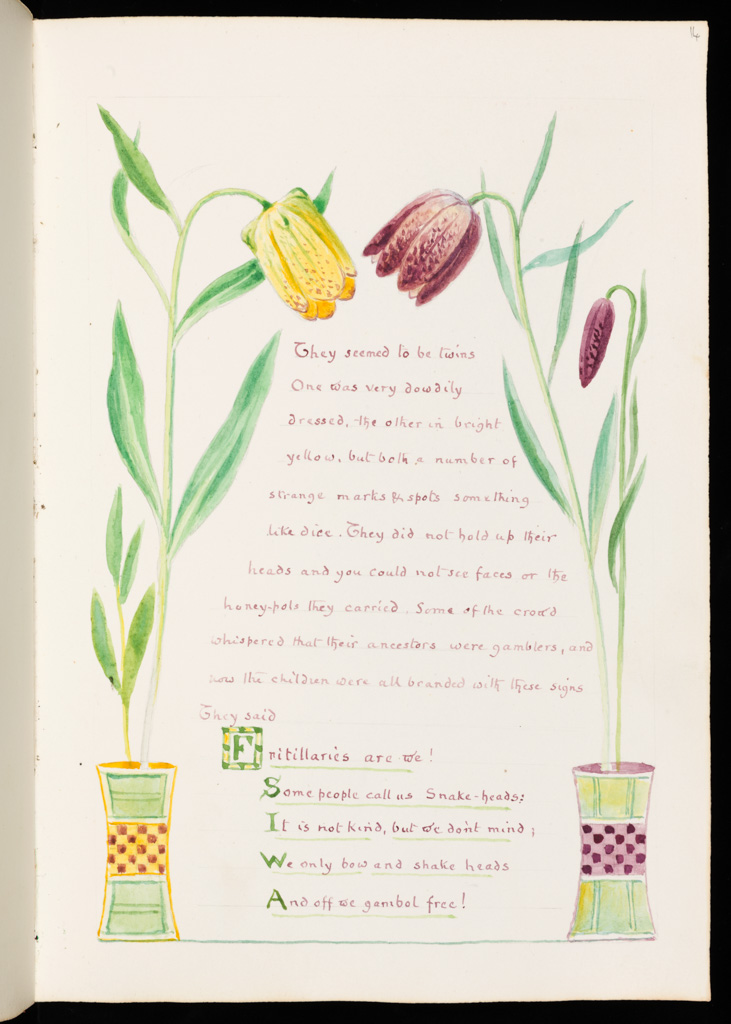 14
They seemed to be twins
One was very dowdily
dressed, the other in bright
yellow, but both a number of
strange marks & spots something
like dice. They did not hold up their
heads and you could not see faces or the
honey-pots they carried. Some of the crowd
whispered that their ancestors were gamblers, and
now the children were all branded with these signs
They said
Fritillaries are we!
Some people call us Snake-heads;
It is not kind, but we don't mind;
We only bow and shake heads
And off we gambol free!